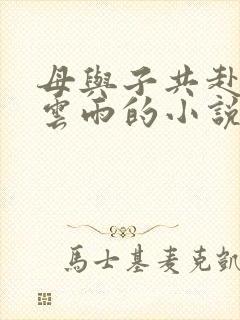 母與子共赴
雲雨的小說
馬士基麦克凱